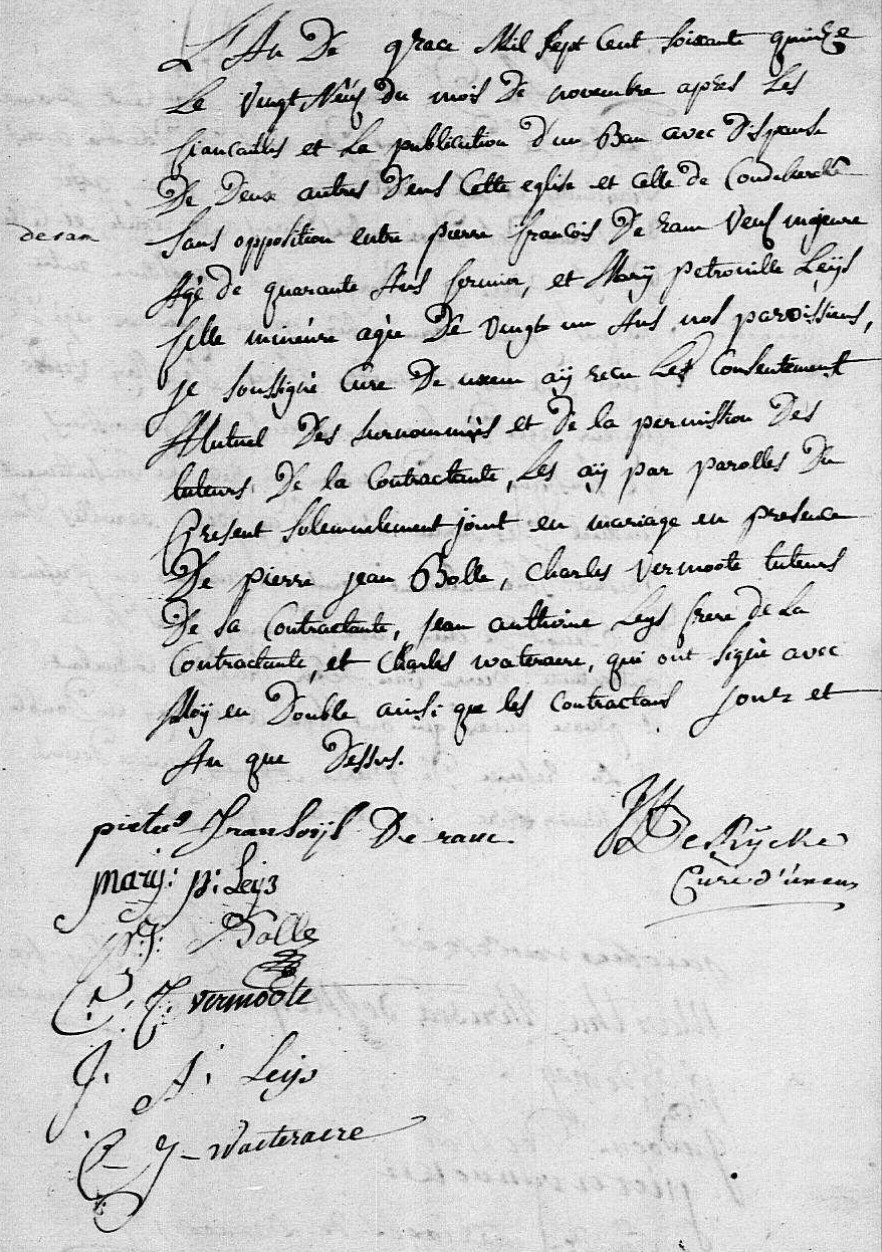 L'An De grace Mil sept Cent soixante quinze
Le vingt Neuf du mois De novembre apres Les
fiancailles et La publication d'un Ban avec Dispense
De Deux autres Dens Cette eglise et Celle de
deram
sans opposition entre pierre francois De ram veuf majeure
Agé de quarante Ans fermier, et Marÿ petronille Leÿs
fille mineure agée De vingt un Ans nos paroissiens,
je soussigné Curé De uxem aÿ recu Les Consentement
Mutuel Des surnommés et de la permission Des
tuteurs, De la Contractante, Les aÿ par parolles De
Present solemnelement joint en mariage en presence
De pierre jean Bolle, Charles Vermoote tuteurs
De La Contractante, jean anthoine Leys frere de La
Contractante, et Charles wateraere, qui ont signé avec
Moÿ en Double ainsi que les Contractans jour et
An que Dessus.
pieter Fransoijs De ram
De Rÿcke
marÿ: p: Leijs
Curé d'uxem
p: J: Bolle
C: J: vermoote
J: A: Leijs
C - J - Waeteraere